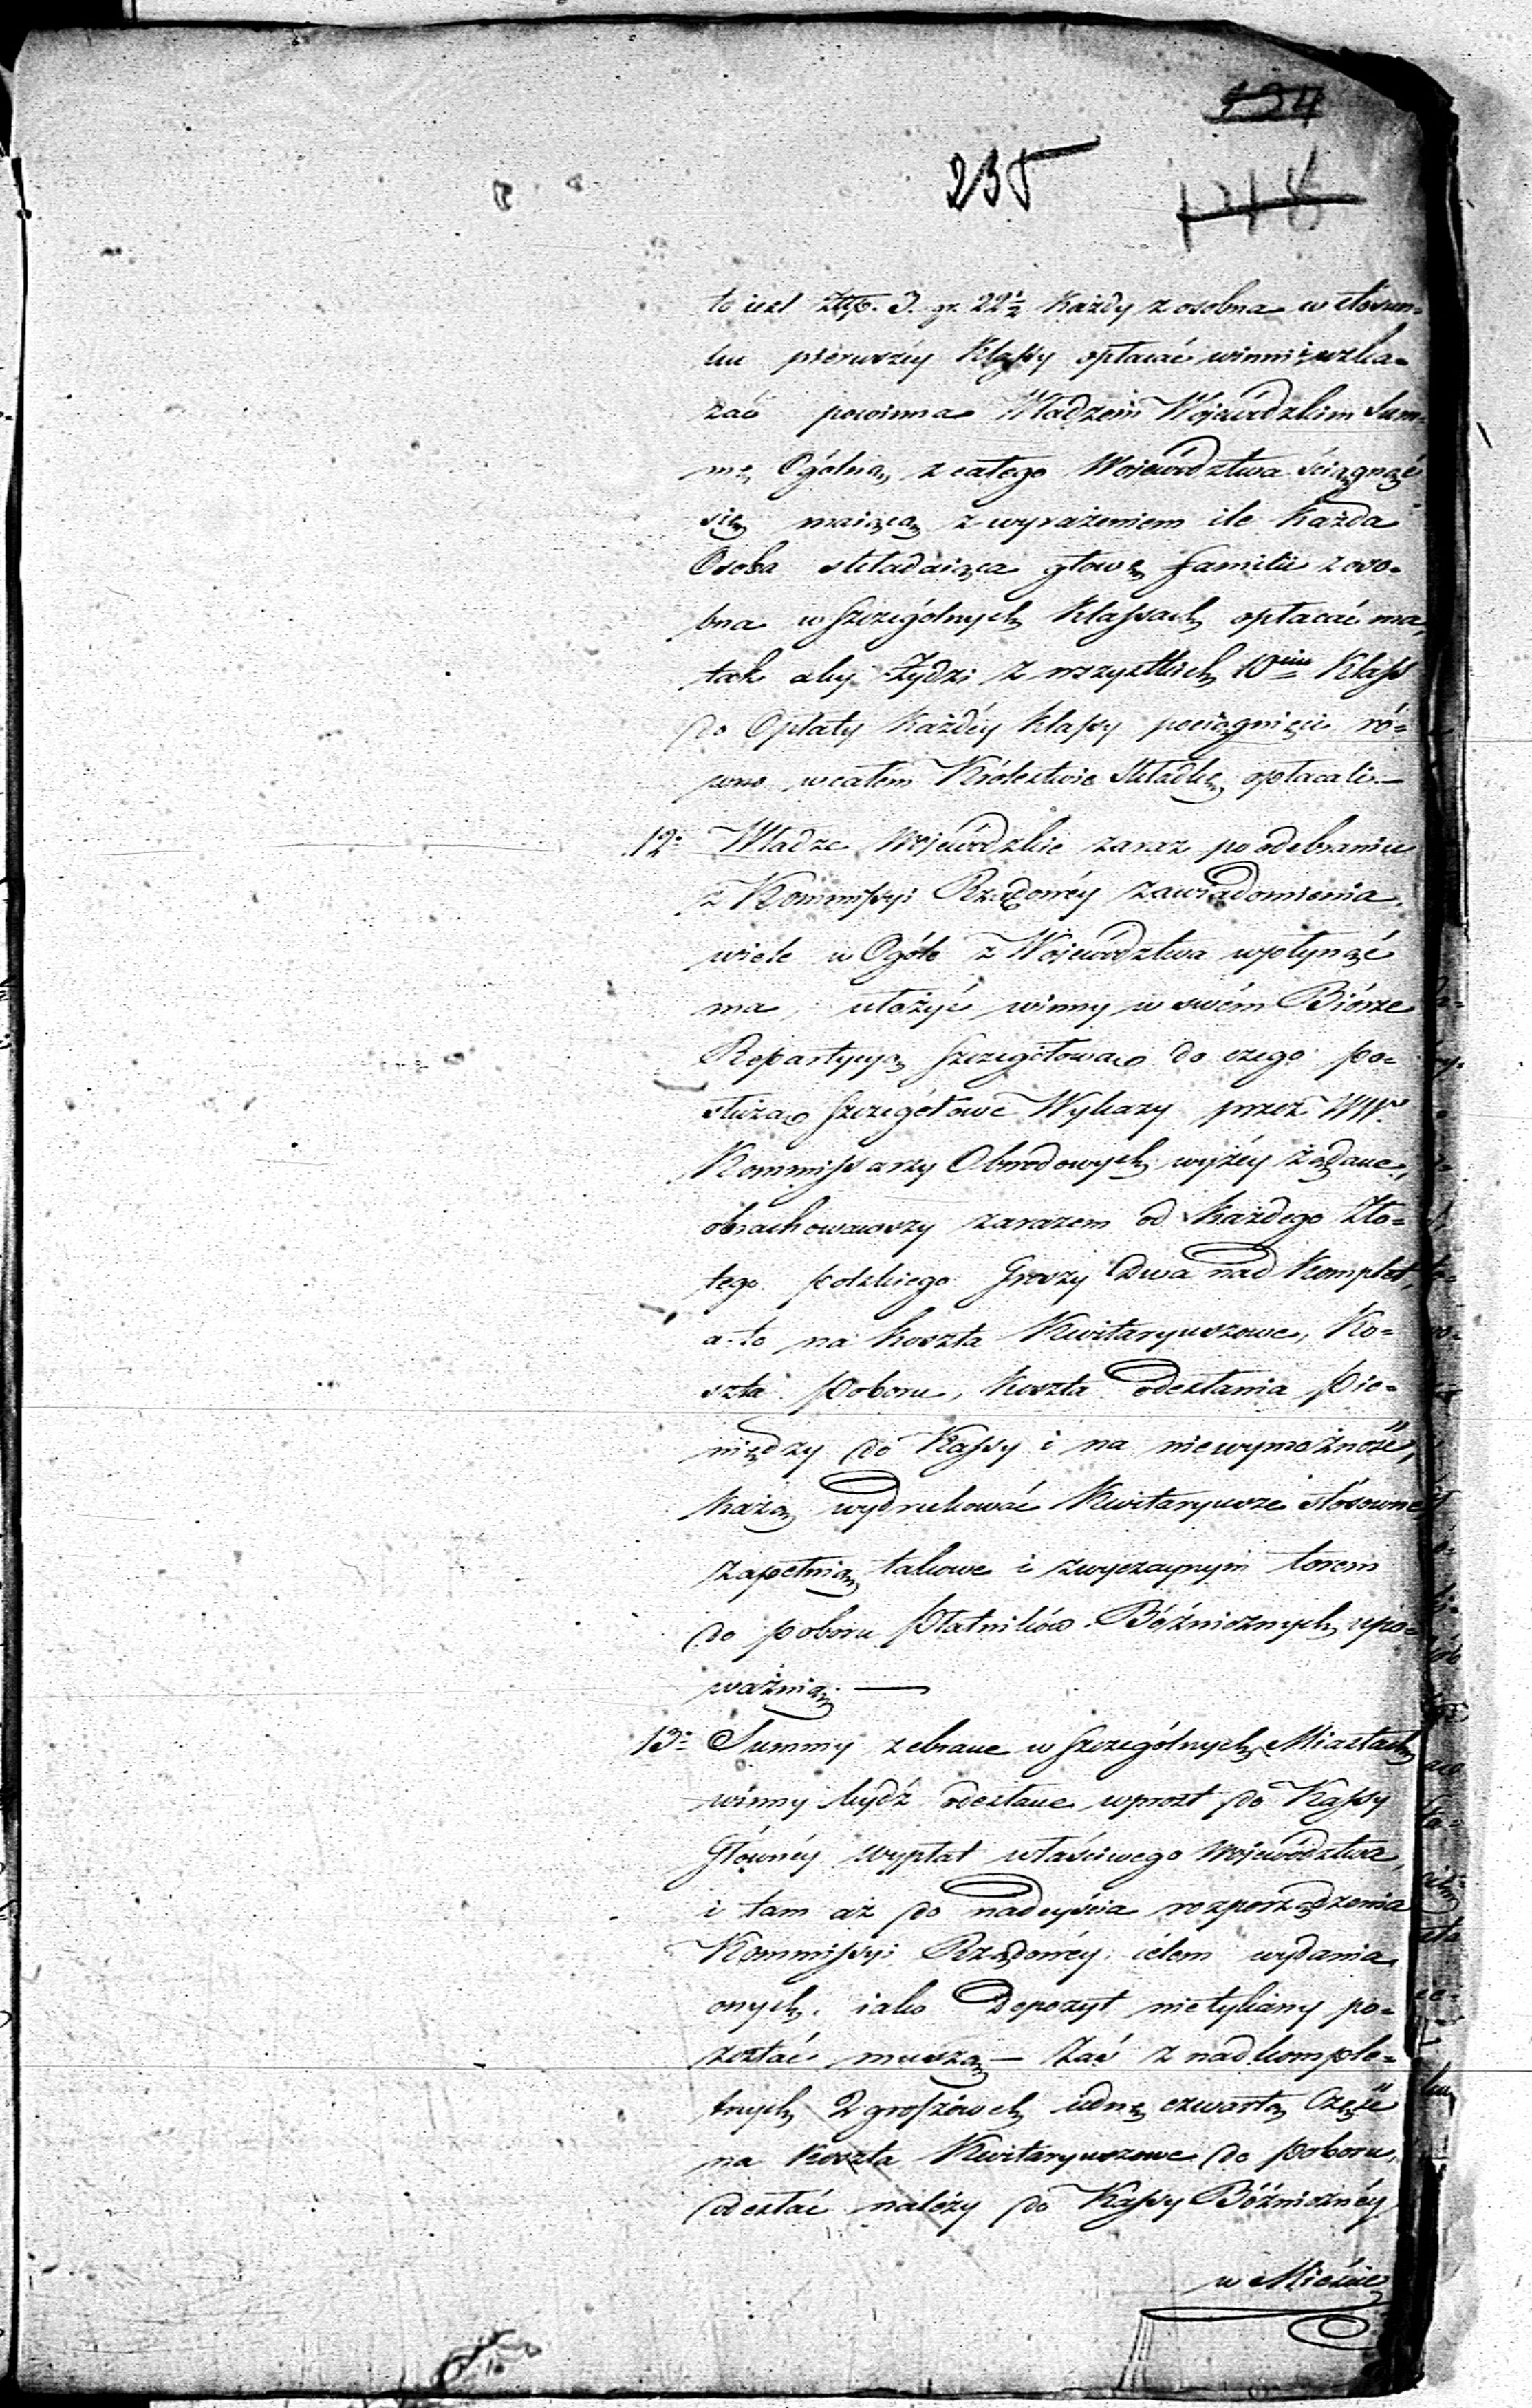 194
235
1218
to iest Złtp. 3. gr. 22½ Każdy z osobna w stosun-
ku pierwszéy Klassy opłacać winni; wska-
zać powinna Władzom Wojewódzkim Sum-
mę Ogólną, z całego Województwa ściągnąć
się maiącą z wyrażeniem ile Każda
Osoba składaiąca głowę familii z oso-
bna w szczególnych Klassach opłacać ma,
tak aby Żydzi z wszystkich 10ciu Klass
do Opłaty Każdéy Klassy pociągnięci ró-
wno w całém Królestwie Składkę opłacali.—
12. Władze Wojewódzkie zaraz po odebraniu
z Kommissyi Rządowéy zawiadomienia,
wiele w Ogóle z Województwa wpłynąć
ma, ułożyć winny w swém Biórze
Repartycyą szczegółową do czego po-
służą szczegółowe Wykazy przez WW.
Kommissarzy Obwodowych wyżéy żądane,
obrachowawszy zarazem od Każdego Zło-
tego polskiego Groszy Dwa nad Komplet,
a to na koszta Kwitaryuszowe, Ko-
szta Poboru, Koszta odesłania Pie-
niędzy do Kassy i na niewymożność,
Każą wydrukować Kwitaryusze stosowne
zapełnią takowe i zwyczaynym torem
do poboru Płatników Bóżnicznych upo-
ważnią. —
13. Summy zebrane w szczególnych Miastach
winny bydź odesłane wprost do Kassy
Głównéy wypłat właściwego Województwa,
i tam aż do nadeyścia rozporządzenia
Kommissyi Rządowéy celem wydania
onych, iako Depozyt nietykany po-
zostać muszą — Zaś z nadkomple-
tnych 2 groszowych iedną czwartą Część
na Koszta Kwitaryuszowe do poboru,
odesłać należy do Kassy Bóżnicznéy
w Mieście